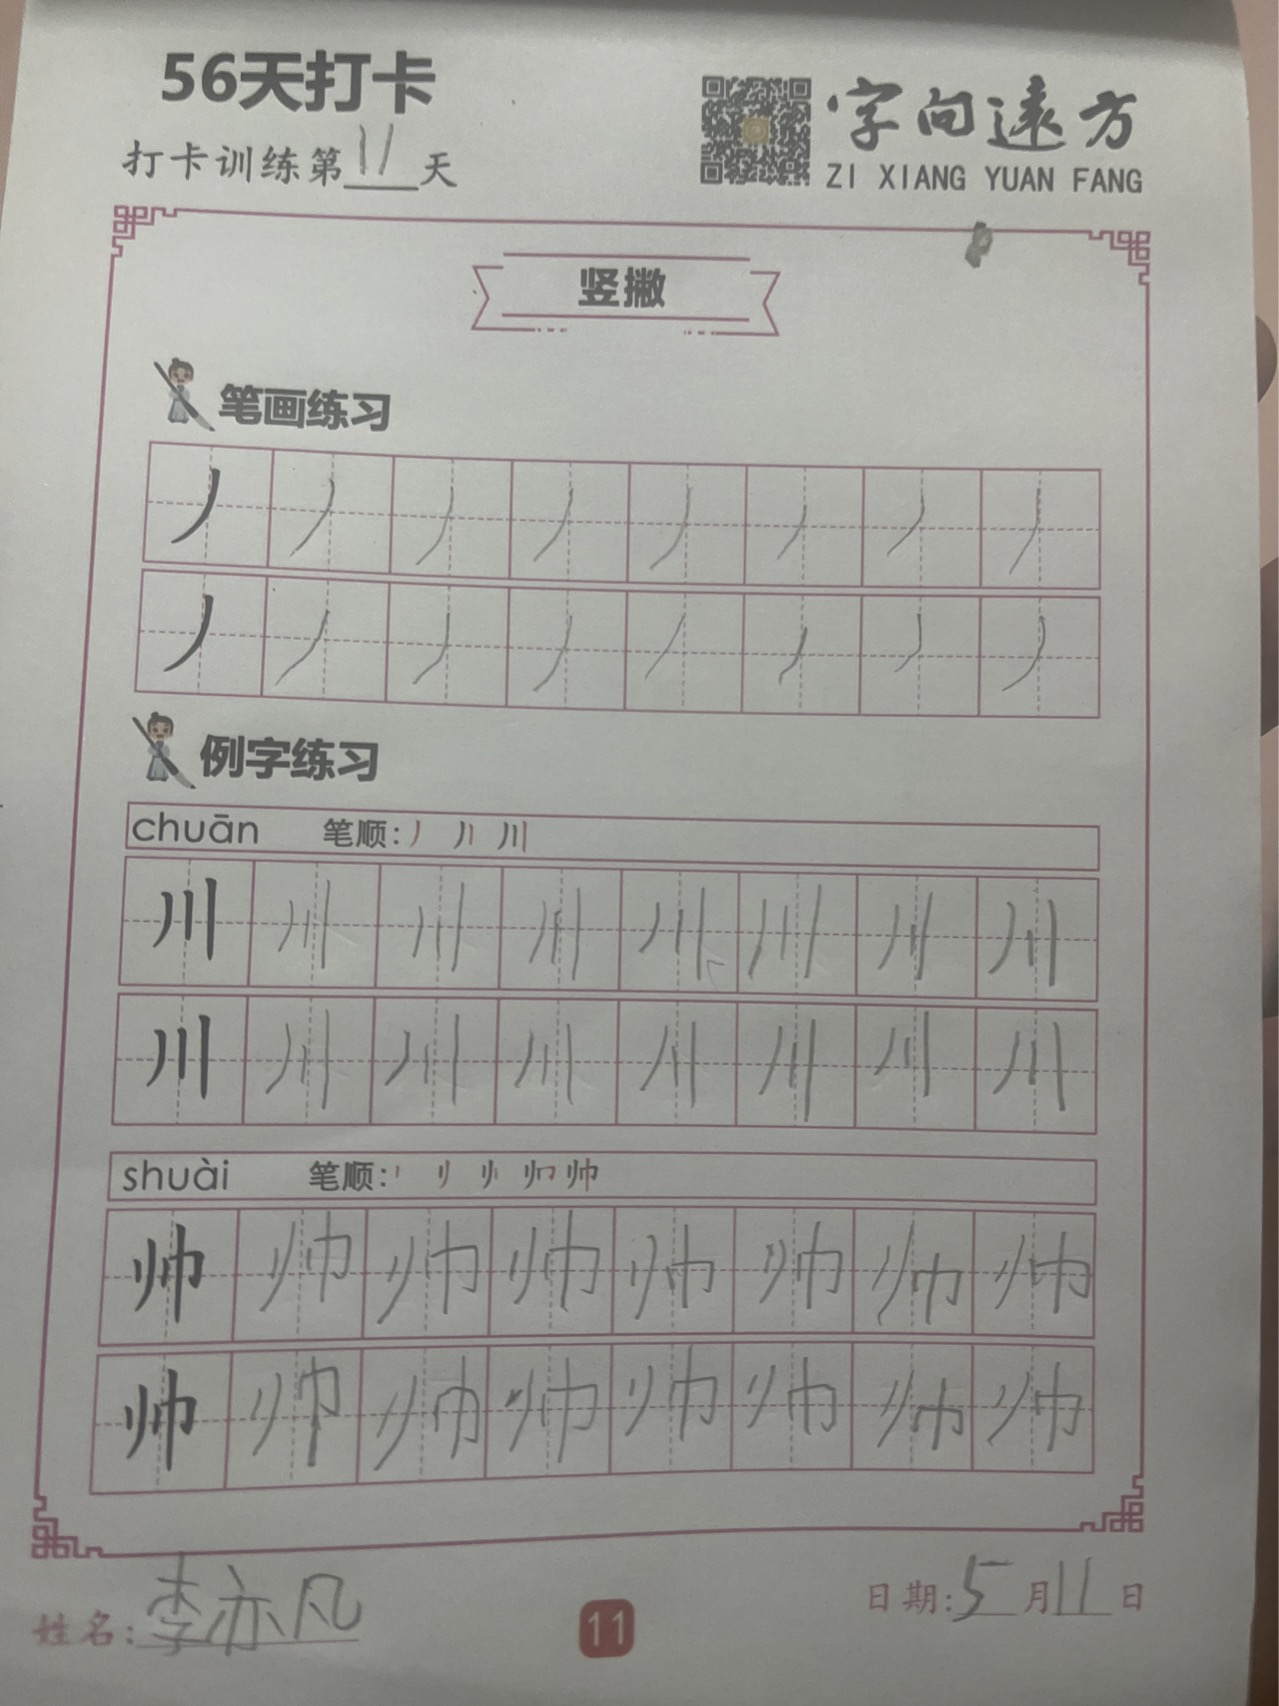 56天打卡
打卡训练第11天
字向远方
ZI XIANG YUAN FANG
竖撇
笔画练习
丿 丿 丿 丿 丿 丿 丿 丿
丿 丿 丿 丿 丿 丿 丿 丿
例字练习
chuān 笔顺: 丿 川
川 川 川 川 川 川 川 川
川 川 川 川 川 川 川 川
shuài 笔顺: 帅
帅 帅 帅 帅 帅 帅 帅 帅
帅 帅 帅 帅 帅 帅 帅 帅
姓名:李亦凡
11
日期:5月11日